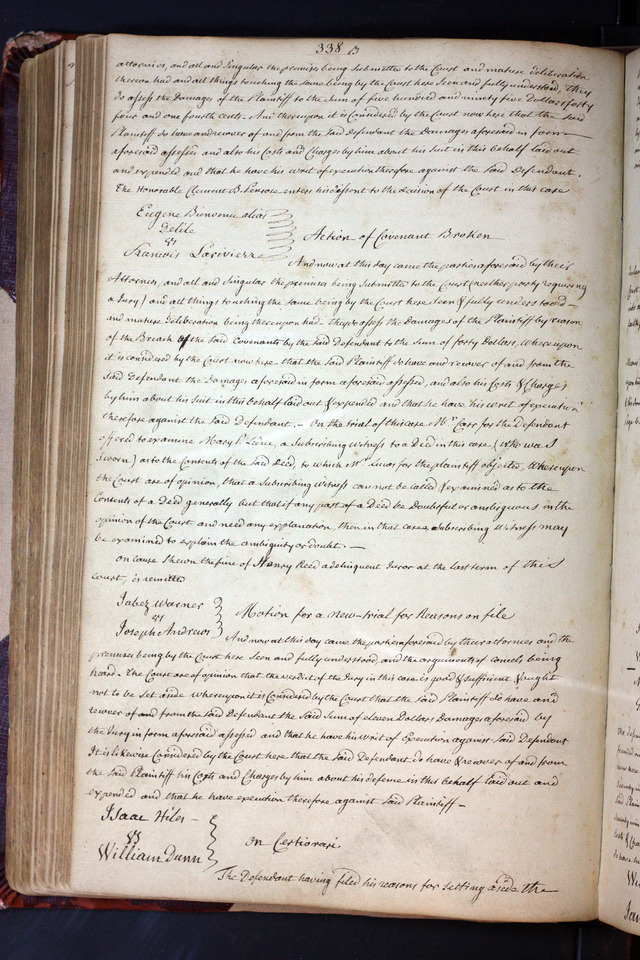 338 B
attornies, and all and Singular the premises being Submitted to the Court and mature deliberation
thereon had and all things touching the same being by the Court here Seen and fully understood, they
do assess the Damages of the Plaintiff to the Sum of five hundred and ninety five Dollars forty
four and one fourth cents. And thereupon it is considered by the Court now here that the said
Plaintiff do have and recover of and from the Said defendant the Damages aforesaid in form
aforesaid assessed and also his Costs and Charges by him about his Suit in this behalf laid out
and expended and that he have his writ of execution therefore against the Said Defendant.
The Honorable Clement B. Penrose enters his dissent to the decision of the Court in this case
Eugene Bienvenue alias
Delile
vs
Francois Lariviere
Action of Covenant Broken
And now at this day came the parties aforesaid by their
Attornies, and all and Singular the premises being Submitted to the Court (neither party requiring
a Jury) and all things touching the same being by the Court here Seen & fully understood —
and mature deliberation being thereupon had they do assess the Damages of the Plaintiff by reason
of the Breach of the Said Covenants by the Said Defendant to the Sum of forty Dollars, whereupon
it is considered by the Court now here that the Said Plaintiff do have and recover of and from the
Said Defendant the Damages aforesaid in form aforesaid assessed, and also his Costs & Charges
by him about his Suit in this behalf laid out & expended and that he have his writ of execution
therefore against the Said Defendant. — On the trial of this case Mr. Carr for the defendant
offered to examine Mary P. Leduc, a Subscribing Witness to a Deed in this case (who was
Sworn) as to the Contents of the Said Deed, to which Mr. Lucas for the plaintiff objected, Whereupon
the Court are of opinion, that a Subscribing Witness cannot be called & examined as to the
Contents of a Deed generally but that if any part of a Deed be Doubtful or ambiguous in the
opinion of the Court and need any explanation then in that case a Subscribing Witness may
be examined to explain the ambiguity or doubt. —
On cause Shewn the fine of Henry Reed a delinquent Juror at the last term of this
court, is remitted
Jabez Warner
vs
Joseph Andrews
Motion for a new-trial for Reasons on file
And now at this day came the parties aforesaid by their attornies and the
premises being by the Court here Seen and fully understood and the arguments of counsels being
heard. The Court are of opinion that the verdict of the Jury in this case is good & sufficient & ought
not to be Set aside whereupon it is Considered by the Court that the Said Plaintiff do have and
recover of and from the Said Defendant the Said Sum of eleven Dollars Damages aforesaid by
the Jury in form aforesaid assessed and that he have his writ of Execution against Said Defendant
It is likewise Considered by the Court here that the Said Defendant do have & recover of and from
the Said Plaintiff his Costs and Charges by him about his defense in this behalf laid out and
expended and that he have execution therefore against Said Plaintiff —
Isaac Hiles —
vs
William Dunn
On Certiorari
The Defendant having filed his reasons for Setting aside the